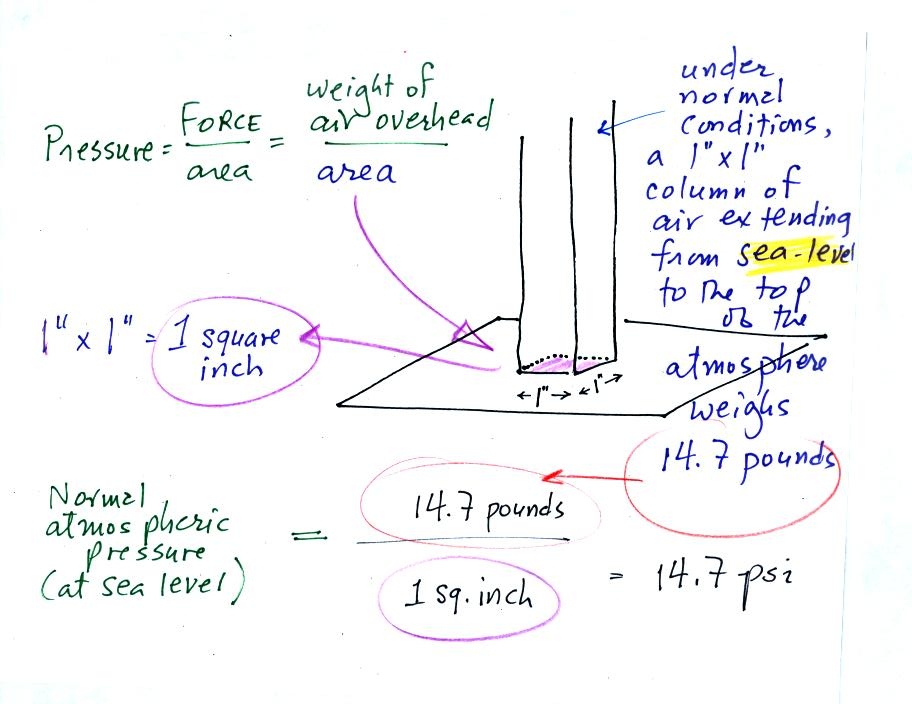 Pressure = FORCE / area = weight of air overhead / area
under
normal
conditions,
a 1" x 1"
column of
air extending
from sea-level
to the top
of the
atmosphere
weighs
14.7 pounds
1" x 1" = 1 square
inch
1" 1"
Normal
atmospheric
pressure
(at sea level)
= 14.7 pounds / 1 sq. inch = 14.7 psi